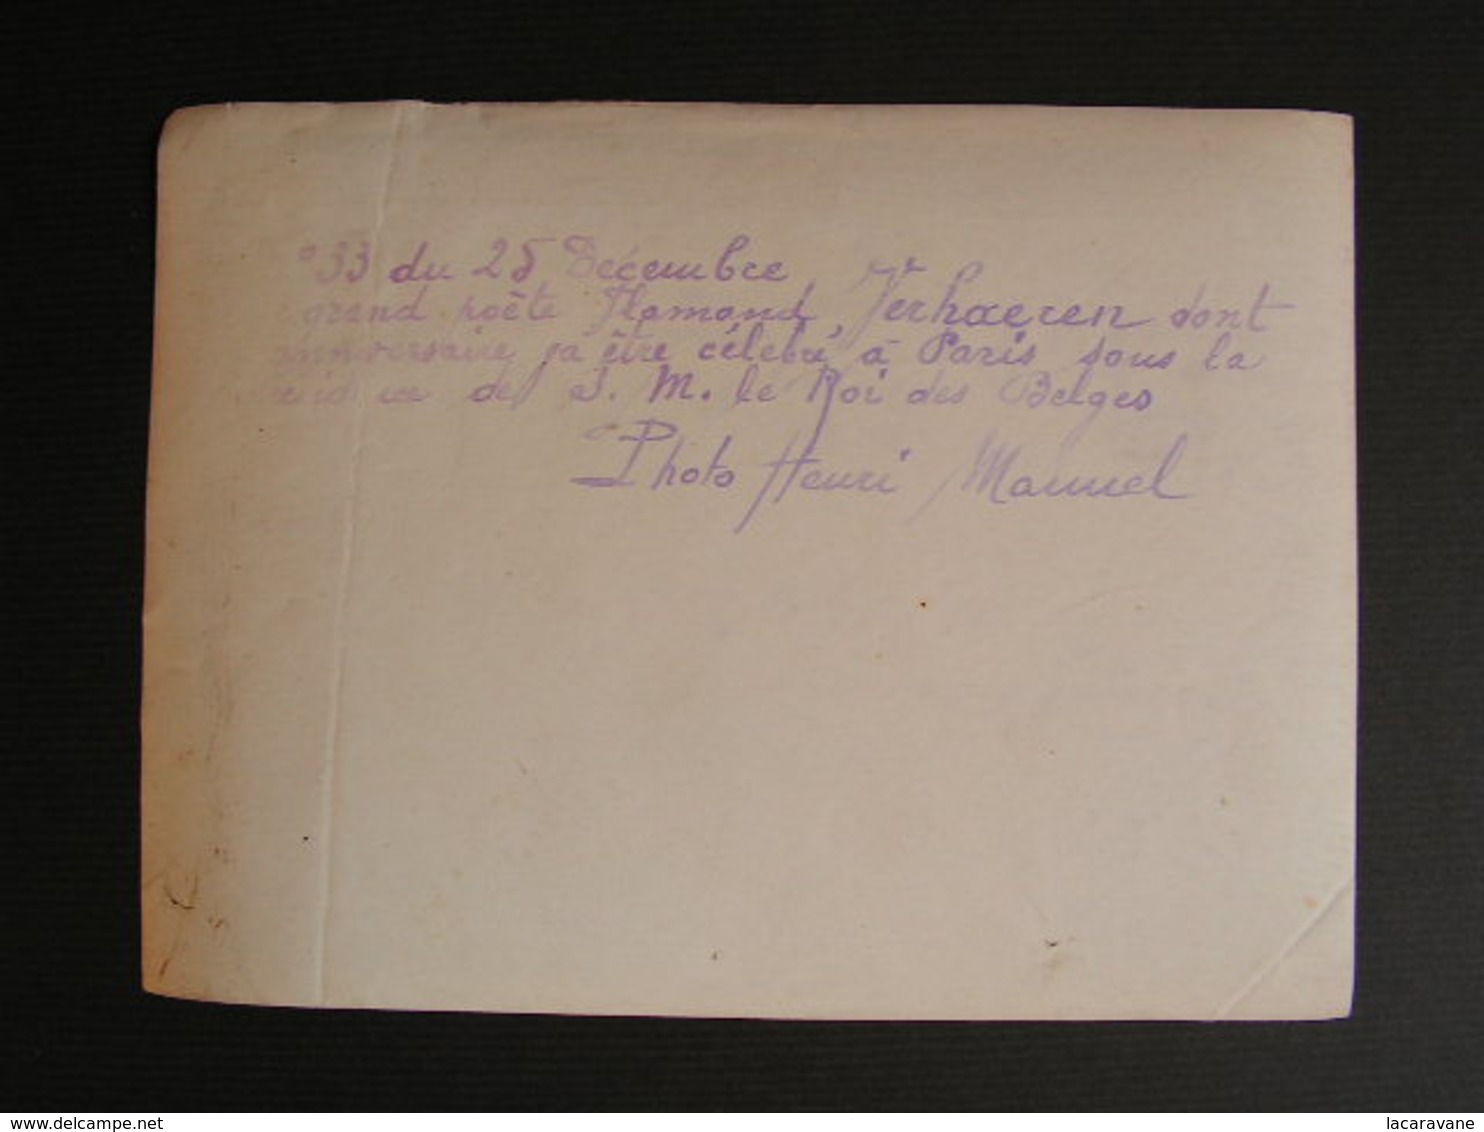 °33 du 25 Décembre
grand poète Flamand, Verhaeren dont
anniversaire va être célébré à Paris sous la
de S. M. le Roi des Belges
Photo Henri Manuel
delcampe.net
lacaravane